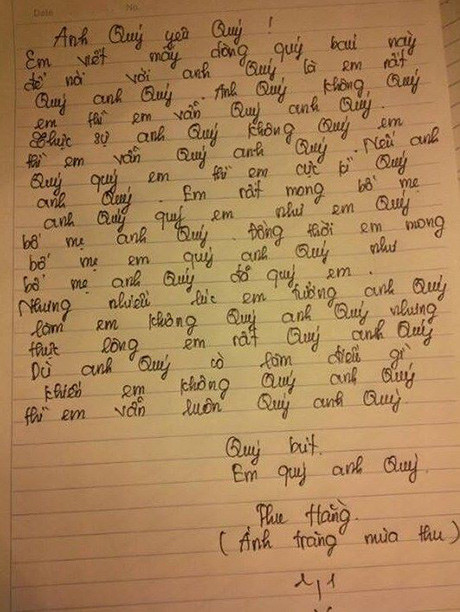 Date No.
Anh Quý yêu Quý !
Em viết mấy dòng quý baui này
để nói với anh Quý là em rất
Quý anh Quý. Anh Quý không Quý
em thì em vẫn Quý anh Quý.
Thực sự anh Quý không Quý em
thì em vẫn Quý anh Quý. Nếu anh
Quý quý em thì em cực kì Quý
anh Quý. Em rất mong bố mẹ
anh Quý quý em như em Quý
bố mẹ anh Quý. Đồng thời em mong
bố mẹ em quý anh Quý như
bố mẹ anh Quý đã quý em.
Nhưng nhiều lúc em tưởng anh Quý
làm em không Quý anh Quý nhưng
thực lòng em rất Quý anh Quý
Dù anh Quý có làm điều gì
khiến em không Quý anh Quý
thì em vẫn luôn Quý anh Quý.
Quý bút.
Em quý anh Quý.
Thu Hằng.
( Ánh trăng mùa thu )